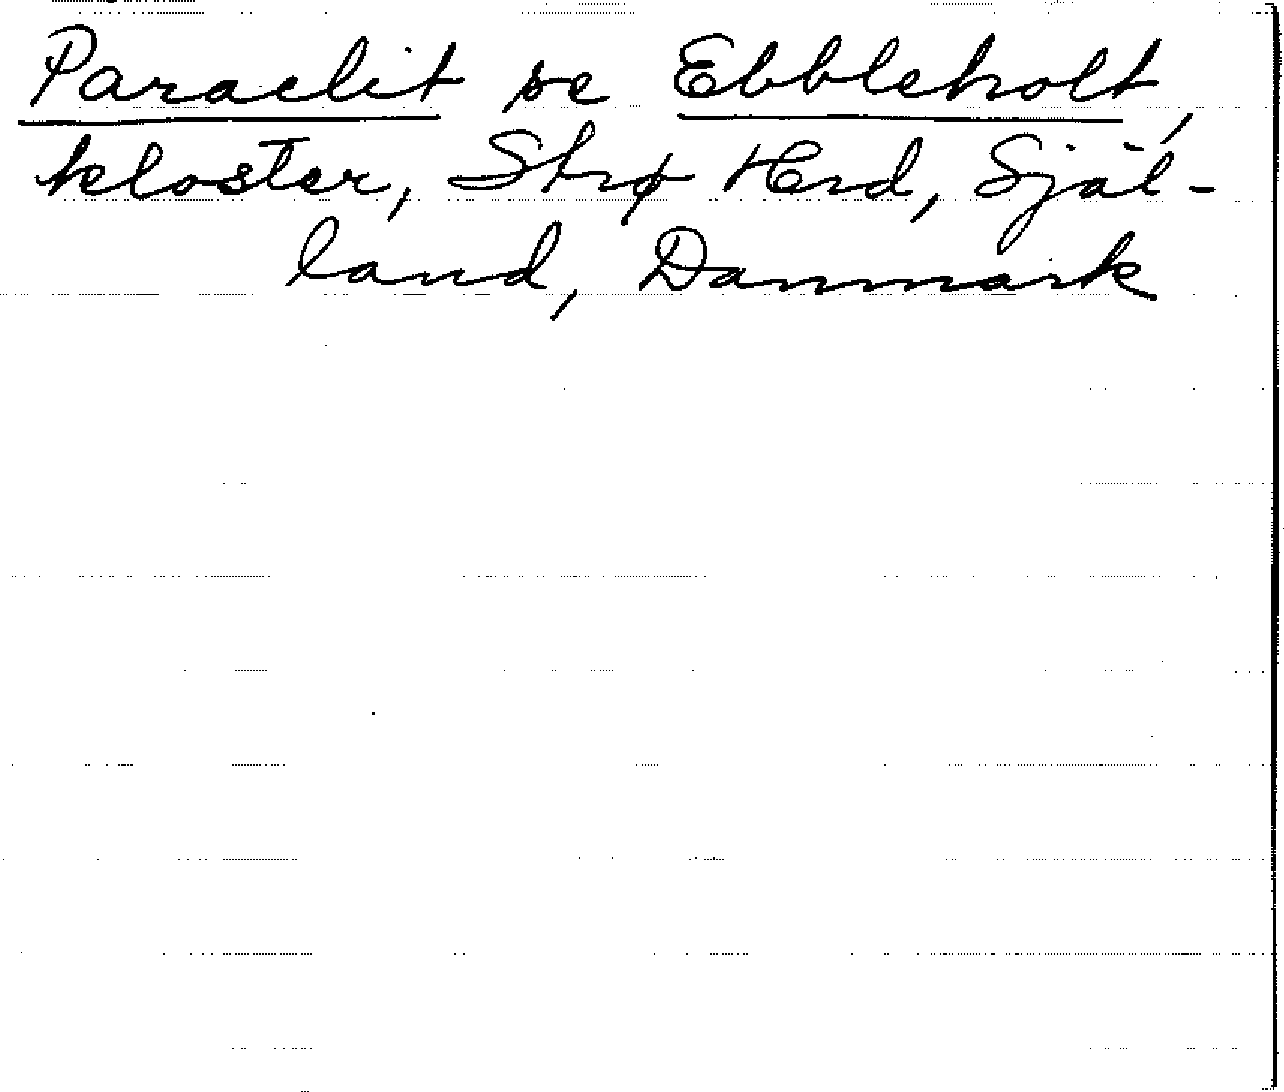 Paraclit se Ebbleholt,
kloster, Strø Herd, Själ-
land, Danmark